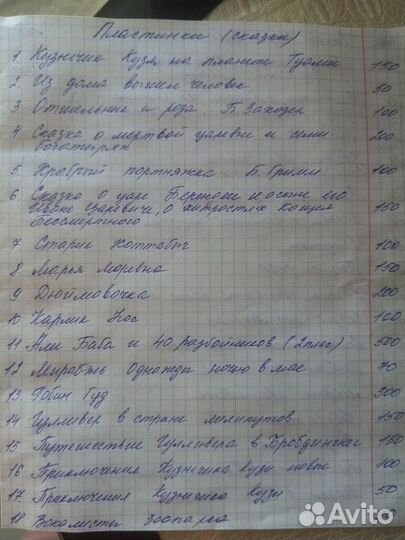 Пластинки (сказки)
1 Кузнечик Кузя на планете Туами 150
2. Из дома вышел человек 50
3. Отшельник и роза. Б. Заходер 100
4 Сказка о мертвой царевне и семи 200
богатырях
5. Храбрый портняжка. Б. Гримм 100
6 Сказка о царе Берендее и о сыне его
Иване Царевиче, о хитростях Кощея 150
Бессмертного
7 Старик Хоттабыч 100
8. Марья Моревна 150
9 Дюймовочка 200
10 Карлик Нос 100
11 Али Баба и 40 разбойников (2плас) 500
12 Однажды ночью в мае 70
13. Робин Гуд 300
14 Гулливер в стране лилипутов 150
15 Путешествие Гулливера в Бробдингнег 150
16. Приключения Кузнечика Кузи новые 100
17. Приключения Кузнечика Кузи 50
18 Вокалисты зоопарка
Avito